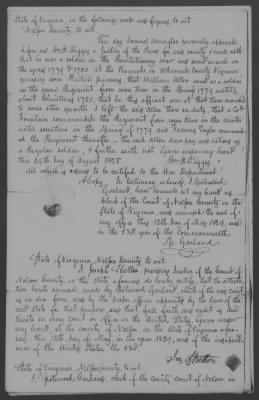 State of Virginia, in the following words and figures, to wit.
Nelson County, to wit.
This day Samuel Arrington personally appeared
before me Wm. H. Digges a Justice of the Peace for said county & made oath
that he was a soldier in the Revolutionary War and was such in
the years 1779 & 1780 at the Barracks in Albemarle County Virginia
guarding some British prisoners that William Allen was a soldier
in the same Regiment from some time in the Spring 1779 until
about Christmas 1780, that he this affiant was at that time marched
to some other quarter & left the said Allen there on duty, that a Col.
Fountain commanded the Regiment from some time in the Winter
until sometime in the Spring of 1779 and Francis Taylor commanded
the Regiment thereafter – he said Allen was doing and acting as
a Regular soldier, & further saith not. Given under my hand
this 29th day of August 1835.
Wm. H. Digges
All which is to be certified to the War Department.
A Copy. In testimony whereof, I Spotswood
Garland, have hereunto set my hand as
clerk of the Court of Nelson County in the
State of Virginia and annexed the seal of
my office this 12th day of May 1839, and
in the 63rd year of the Commonwealth.
Sp. Garland
State of Virginia, Nelson County, to wit.
I, Joseph Shelton, presiding Justice of the Court of
Nelson County, in the State aforesaid, do hereby certify, that the attestation
hereto annexed, made by Spotswood Garland, clerk of the said court
is in due form, and by the proper officer appointed by the laws of the
said State for that purpose, and that full faith and credit is due
thereto in every court or office in the United States. Given under
my hand, at the county of Nelson, in the State of Virginia aforesaid,
this 12th day of May, in the year 1839, and of the independence
of the United States the 63rd.
Jos. Shelton
State of Virginia Nelson County, to wit.
I, Spotswood Garland, clerk of the County court of Nelson, in